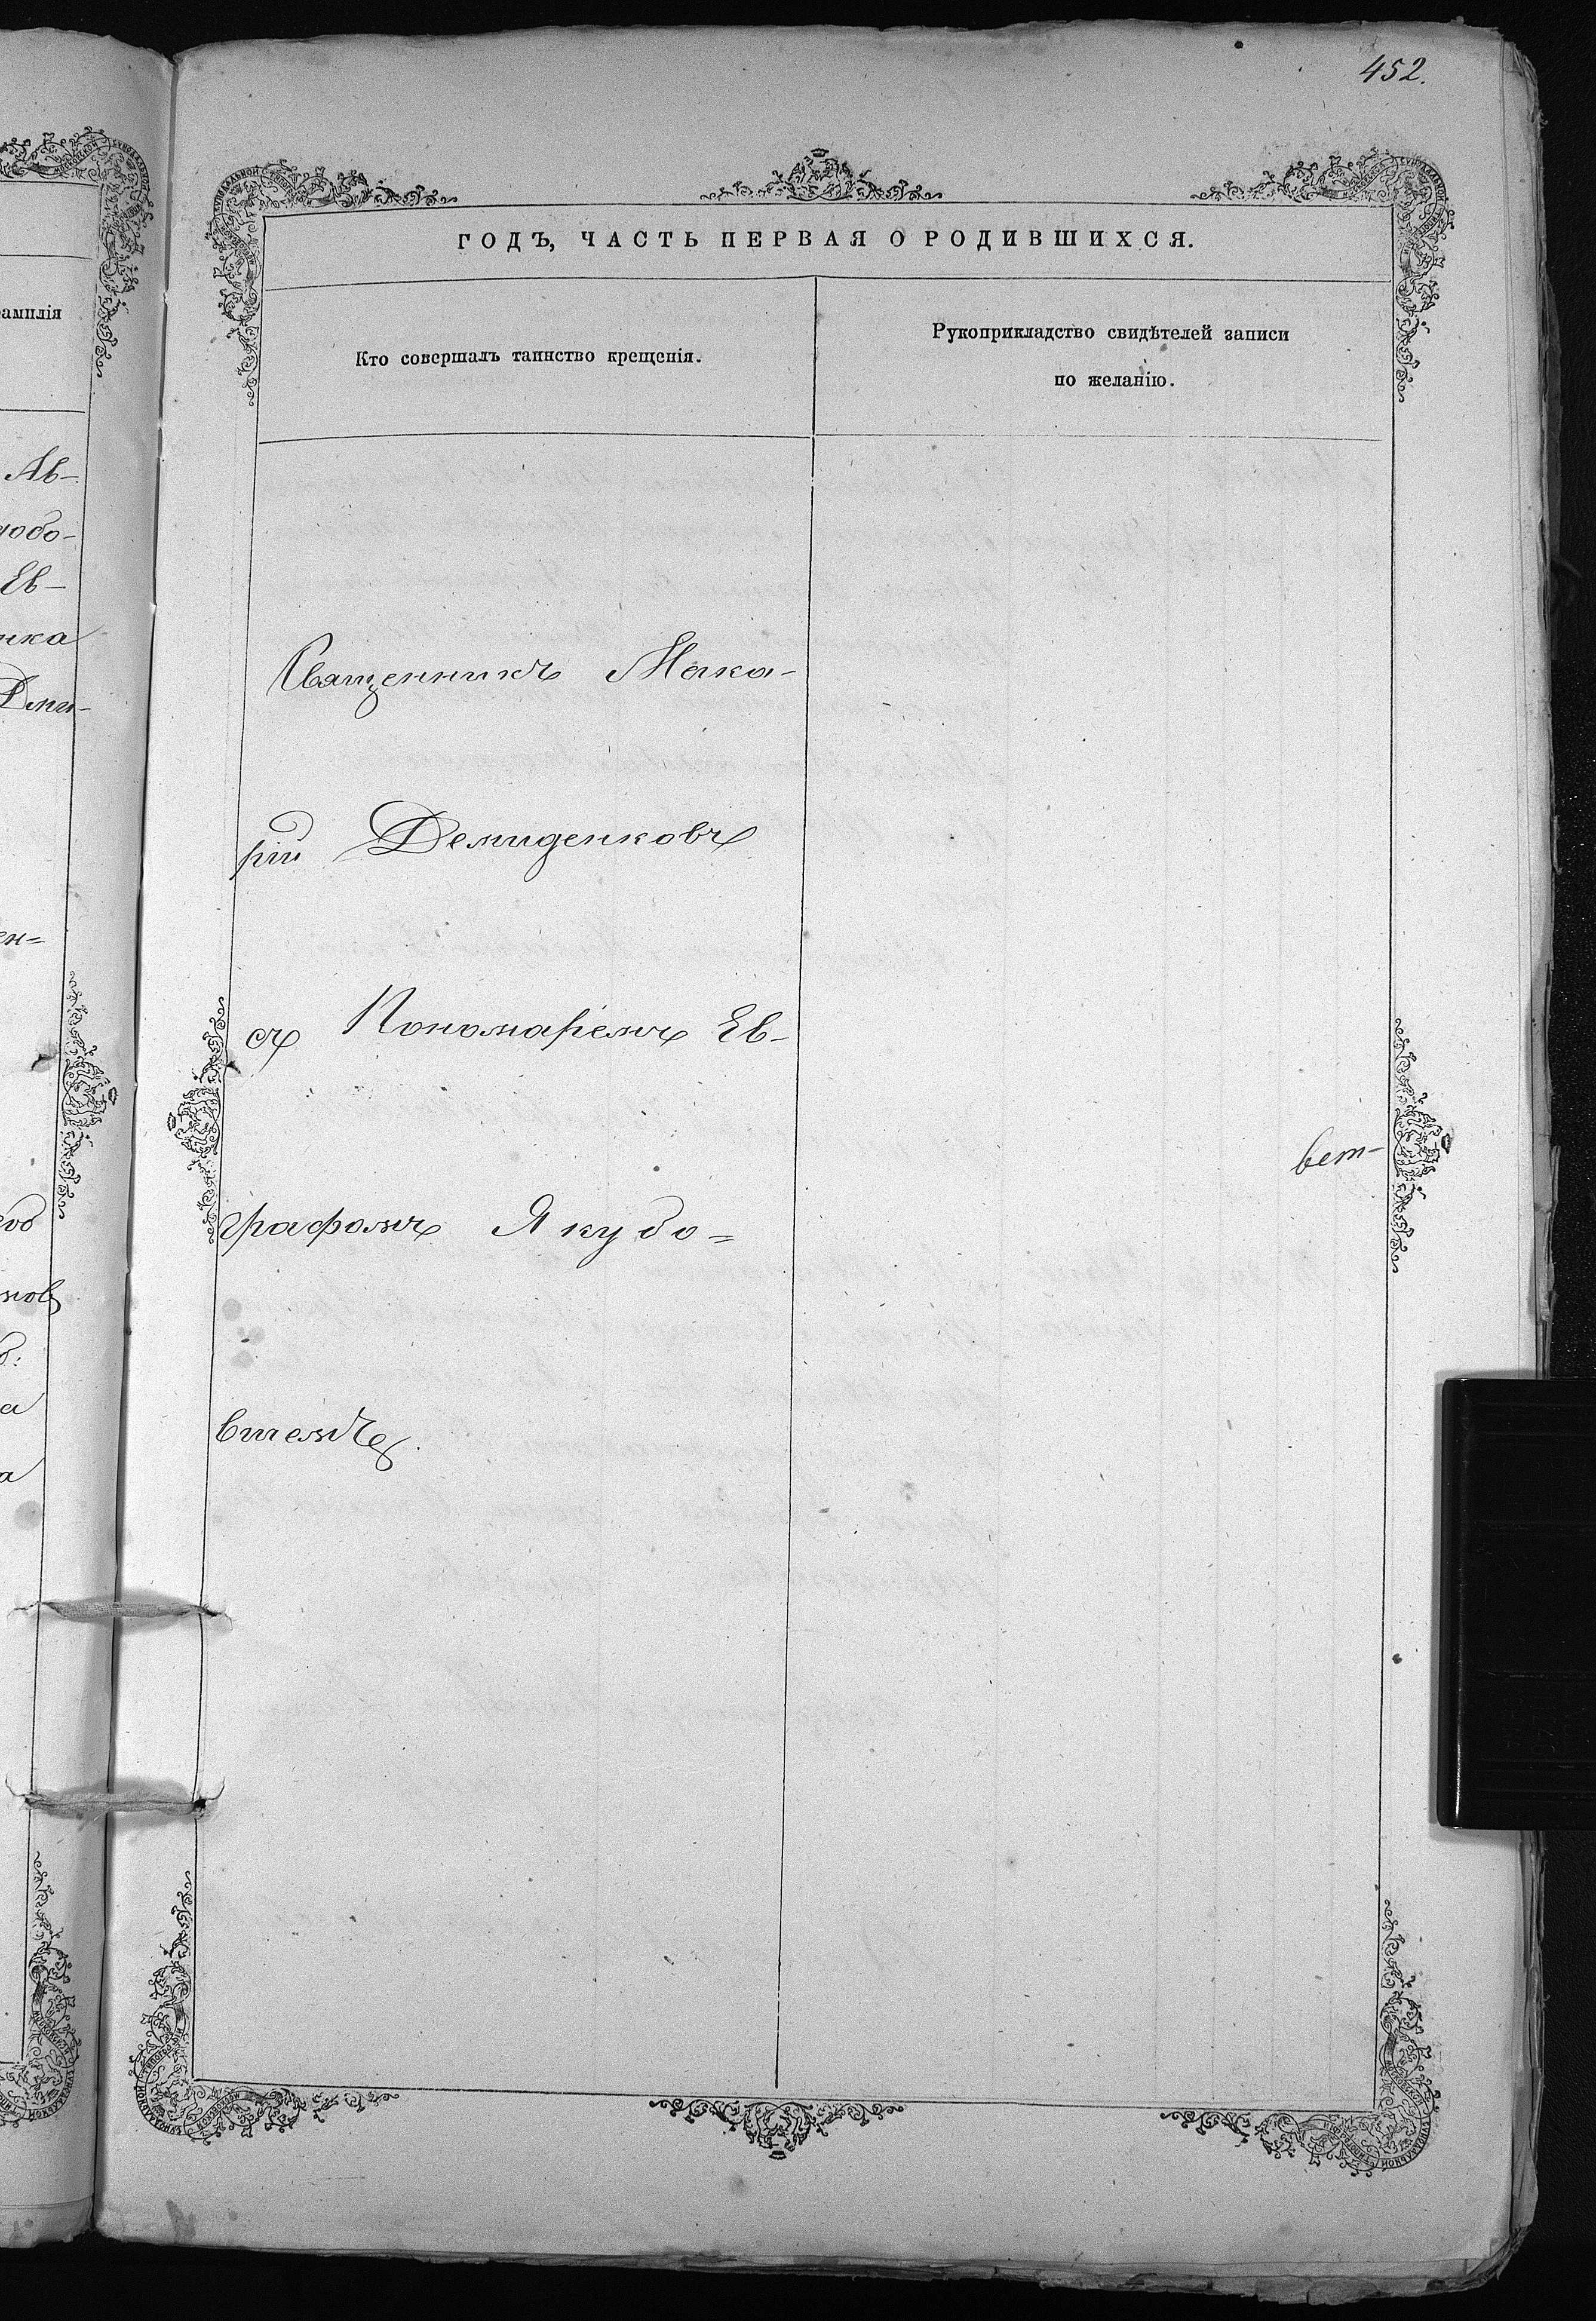 452.
ГОДЪ, ЧАСТЬ ПЕРВАЯ О РОДИВШИХСЯ.
Кто совершалъ таинство крещенія.
Рукоприкладство свидѣтелей записи
по желанію.
Священникъ Мака-
рій Демиденковъ
съ Пономаремъ Ев-
графомъ Якубо=
вичемъ.
вет-
амилія
Ав-
Ев-
нка
Дми-
ен=